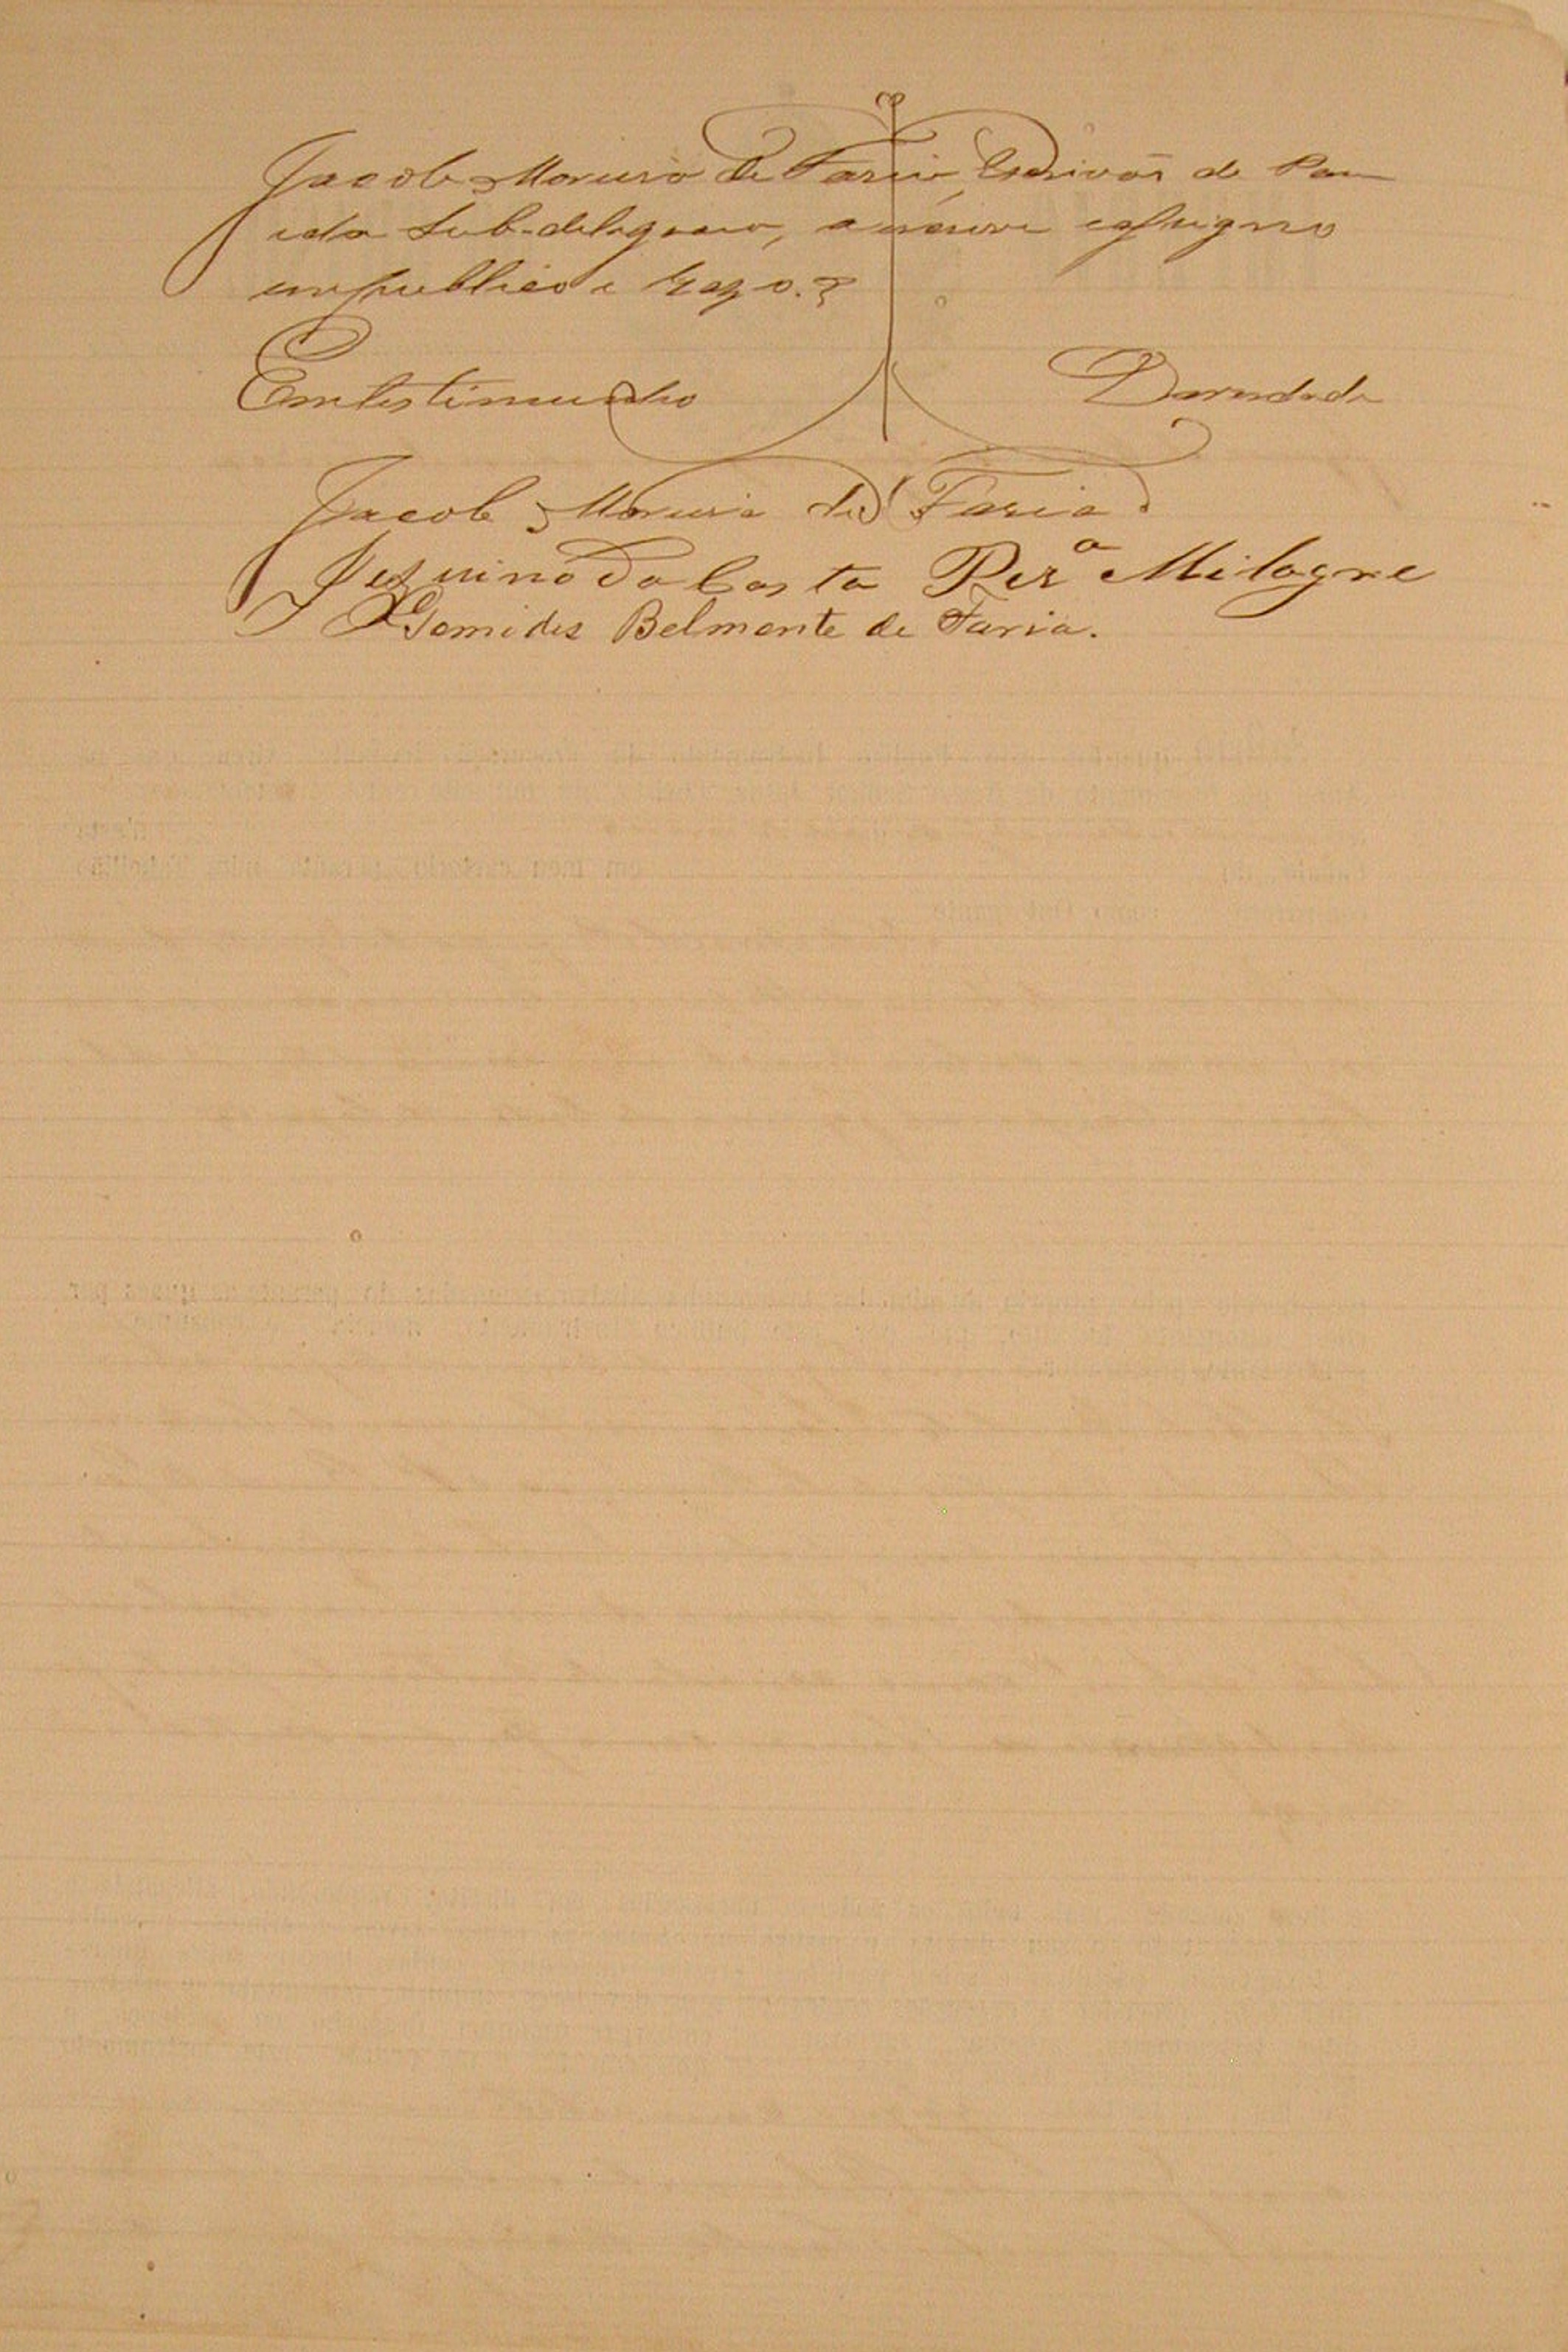 Jacob Moreira de Faria Escrivão de Paz
e da Sub-delegacia, a escrevi e assigno
em publico e razo.
Em testimunho Da verdade
Jacob Moreira de Faria
Jesuino da Costa Perª Milagre
Gomides Belmonte de Faria.